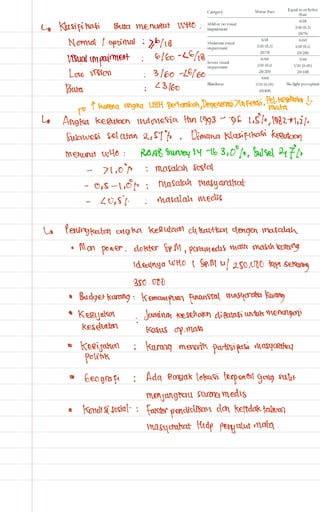 Klasifikasi Buta menurut WHO :
Normal / optimal : ≥6/18
Visual impairment : 6/60 - <6/18
Low vision : 3/60 - <6/60
Buta : <3/60
Category Worse than: Equal to or better than:
Mild or no visual impairment 6/18 3/10 (0.3) 20/70
Moderate visual impairment 6/18 3/10 (0.3) 20/70 6/60 1/10 (0.1) 20/200
Severe visual impairment 6/60 1/10 (0.1) 20/200 3/60 1/20 (0.05) 20/400
Blindness 3/60 1/20 (0.05) 20/400 No light perception
↑ karena angka UHH Pertambah, Degenerasi > Infeksi, Pel. kesehatan ↓ mata
Angka Kebutaan Indonesia thn 1993 - 96 1,5%, 1982 → 1,2%,
Sulawesi Selatan 2,57%. Dimana Klasifikasi Kebutaan
menurut WHO : RAAB Survey 14 - 16 3,0%, Sulsel 2,7%
- >1,0% : masalah sosial
- 0,5 - 1,0% : masalah masyarakat
- <0,5% : masalah medis
Peningkatan angka kebutaan dikaitkan dengan masalah
• Man power : dokter SpM, paramedis mata masih kurang
Idealnya WHO 1 SpM u/ 250.000 tapi sekarang
350 000
• Budget kurang : Kemampuan finansial masyarakat kurang
• Kebijakan kesehatan : Jaminan kesehatan dibatasi untuk menangani
kasus op. mata
• Kebijakan politik : Kurang menarik partisipasi masyarakat
• Geografi : Ada banyak lokasi terpencil yang sulit
menjangkau sarana medis
• Kondisi sosial : Faktor pendidikan dan ketidaktahuan
masyarakat thdp penyakit mata.